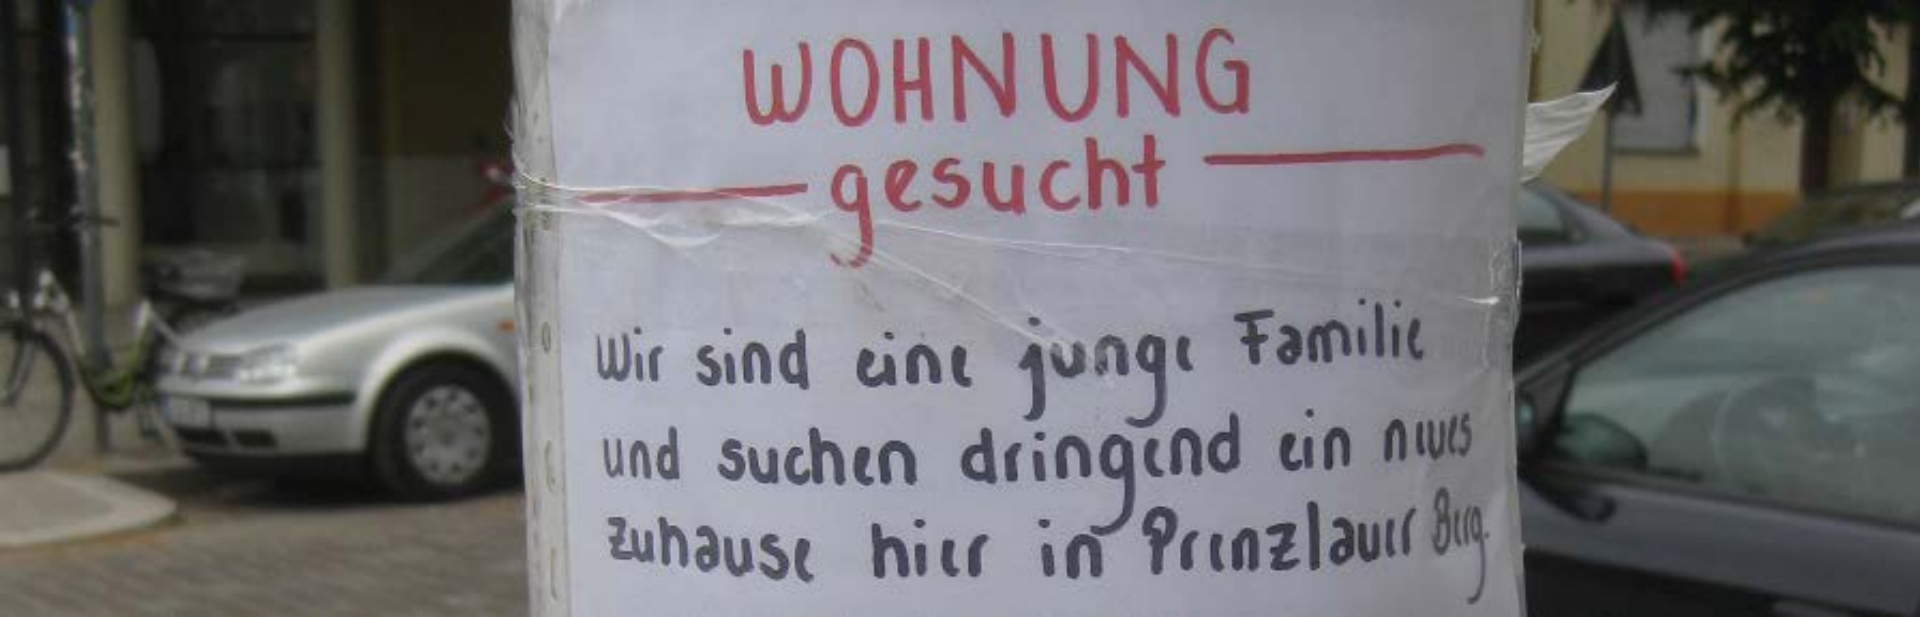 WOHNUNG
gesucht
Wir sind eine junge Familie
und suchen dringend ein neues
zuhause hier in Prenzlauer Berg.